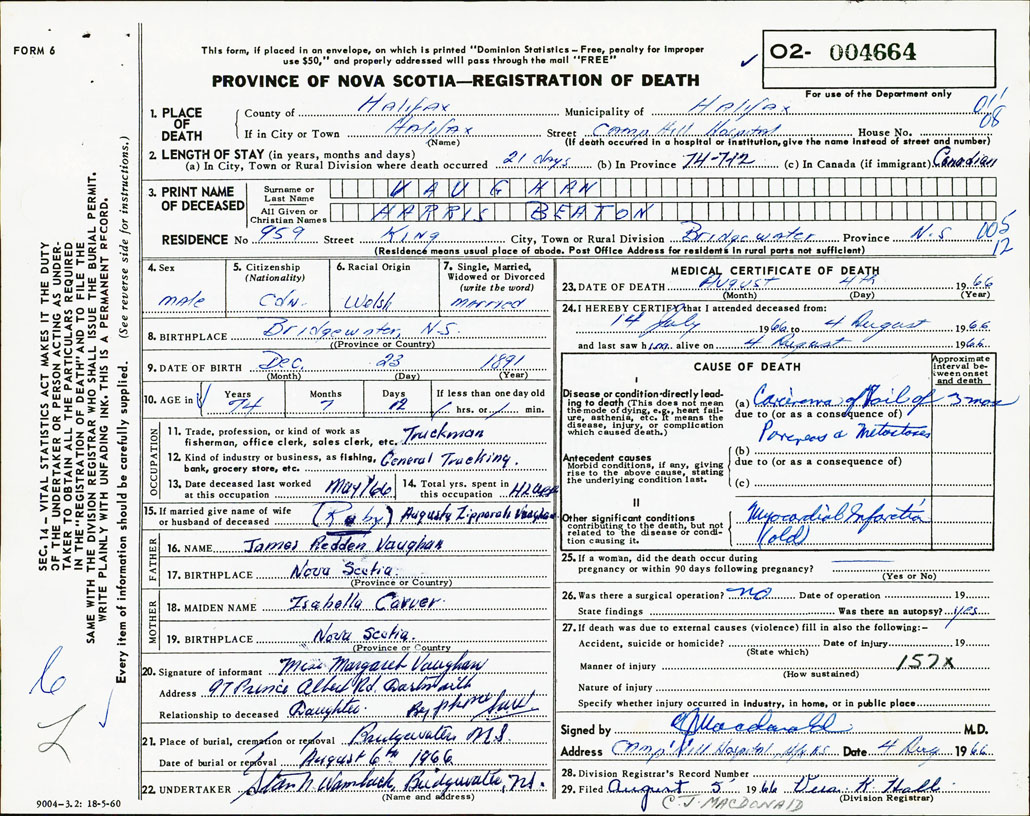 FORM 6
This form, if placed in an envelope, on which is printed "Dominion Statistics – Free, penalty for improper
use $50," and properly addressed will pass through the mail "FREE"
PROVINCE OF NOVA SCOTIA—REGISTRATION OF DEATH
02- 004664
For use of the Department only
1. PLACE OF DEATH
County of Halifax Municipality of Halifax 01/
08
If in City or Town Halifax Street Camp Hill Hospital House No.
(Name) (If death occurred in a hospital or institution, give the name instead of street and number)
2. LENGTH OF STAY (in years, months and days)
(a) In City, Town or Rural Division where death occurred 21 days (b) In Province 74-7-12 (c) In Canada (if immigrant) Canadian
3. PRINT NAME OF DECEASED
Surname or Last Name VAUGHAN
All Given or Christian Names HARRIS BEATON
RESIDENCE No 959 Street King City, Town or Rural Division Bridgewater Province N.S 005
12
(Residence means usual place of abode. Post Office Address for residents in rural parts not sufficient)
4. Sex
male
5. Citizenship
(Nationality)
Cdn.
6. Racial Origin
Welsh
7. Single, Married,
Widowed or Divorced
(write the word)
married
8. BIRTHPLACE Bridgewater, N.S.
(Province or Country)
9. DATE OF BIRTH Dec. 23 1891
(Month) (Day) (Year)
10. AGE in Years Months Days If less than one day old
74 7 12 hrs. or min.
OCCUPATION
11. Trade, profession, or kind of work as
fisherman, office clerk, sales clerk, etc. Truckman
12. Kind of industry or business, as fishing,
bank, grocery store, etc. General Trucking.
13. Date deceased last worked
at this occupation May/66
14. Total yrs. spent in
this occupation
15. If married give name of wife
or husband of deceased (Ruby) Augusta Zipporah Vaughan
FATHER
16. NAME James Redden Vaughan
17. BIRTHPLACE Nova Scotia
(Province or Country)
MOTHER
18. MAIDEN NAME Isabella Carver
19. BIRTHPLACE Nova Scotia.
(Province or Country)
20. Signature of informant Miss Margaret Vaughan
Address 97 Prince Albert Rd. Dartmouth
Relationship to deceased Daughter By phone
21. Place of burial, cremation or removal Bridgewater N.S.
Date of burial or removal August 6th 1966
22. UNDERTAKER Stan N. Wamback, Bridgewater, N.S.
(Name and address)
9004-3.2: 18-5-60
MEDICAL CERTIFICATE OF DEATH
23. DATE OF DEATH August 4th 1966
(Month) (Day) (Year)
24. I HEREBY CERTIFY that I attended deceased from:
14 July 1966 to 4 August 1966
and last saw him alive on 4 August 1966
CAUSE OF DEATH
Approximate
interval be-
tween onset
and death
I
Disease or condition directly lead-
ing to death (This does not mean
the mode of dying, e.g., heart fail-
ure, asthenia, etc. It means the
disease, injury, or complication
which caused death.)
(a) Carcinoma of Tail of 3 mos
due to (or as a consequence of)
Pancreas c Metastases
Antecedent causes
Morbid conditions, if any, giving
rise to the above cause, stating
the underlying condition last.
(b)
due to (or as a consequence of)
(c)
II
Other significant conditions
contributing to the death, but not
related to the disease or condi-
tion causing it.
Myocardial Infarction
(old)
25. If a woman, did the death occur during
pregnancy or within 90 days following pregnancy?
(Yes or No)
26. Was there a surgical operation? no Date of operation 19
State findings Was there an autopsy? yes
27. If death was due to external causes (violence) fill in also the following:–
Accident, suicide or homicide? Date of injury 19
(State which)
Manner of injury 157X
(How sustained)
Nature of injury
Specify whether injury occurred in industry, in home, or in public place
Signed by CJ Macdonald M.D.
Address Camp Hill Hospital, Hfx N.S. Date 4 Aug 1966
28. Division Registrar's Record Number
29. Filed August 5 1966 K. Hall
C. J. MACDONALD (Division Registrar)
SEC. 14 VITAL STATISTICS ACT MAKES IT THE DUTY
OF THE UNDERTAKER OR PERSON ACTING AS UNDER-
TAKER TO OBTAIN ALL THE PARTICULARS REQUIRED
IN THE "REGISTRATION OF DEATH" AND TO FILE THE
SAME WITH THE DIVISION REGISTRAR WHO SHALL ISSUE THE BURIAL PERMIT.
WRITE PLAINLY WITH UNFADING INK. THIS IS A PERMANENT RECORD.
Every item of information should be carefully supplied. (See reverse side for instructions.)